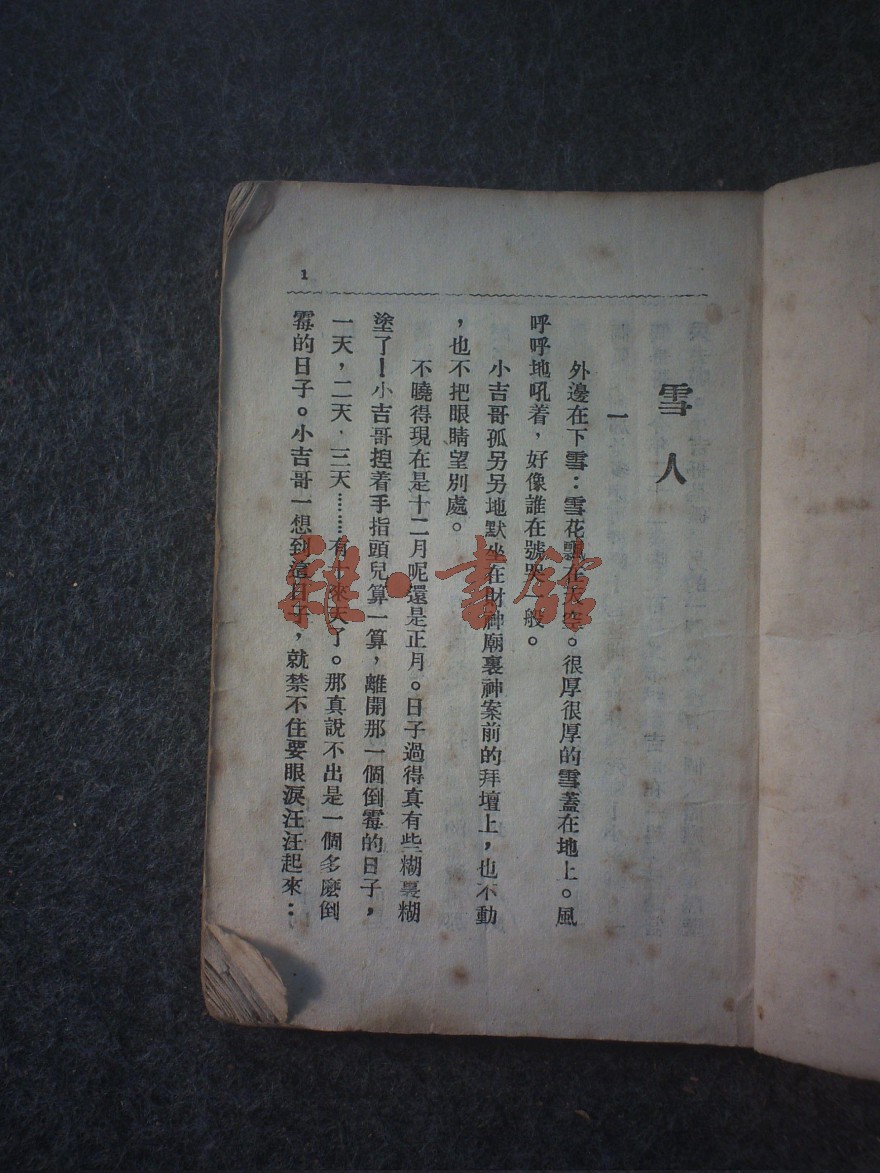 雪人
一
外邊在下雪：雪花飄在天空。很厚很厚的雪蓋在地上。風
呼呼地吼着，好像誰在號哭一般。
小吉哥孤另另地默坐在財神廟裏神案前的拜壇上，也不動
，也不把眼睛望別處。
不曉得現在是十二月呢還是正月。日子過得真有些糊裏糊
塗了！小吉哥揑着手指頭兒算一算，離開那一個倒霉的日子，
一天，二天，三天………有十來天了。那真說不出是一個多麽倒
霉的日子。小吉哥一想到這日子，就禁不住要眼淚汪汪起來：
1
雜·書館